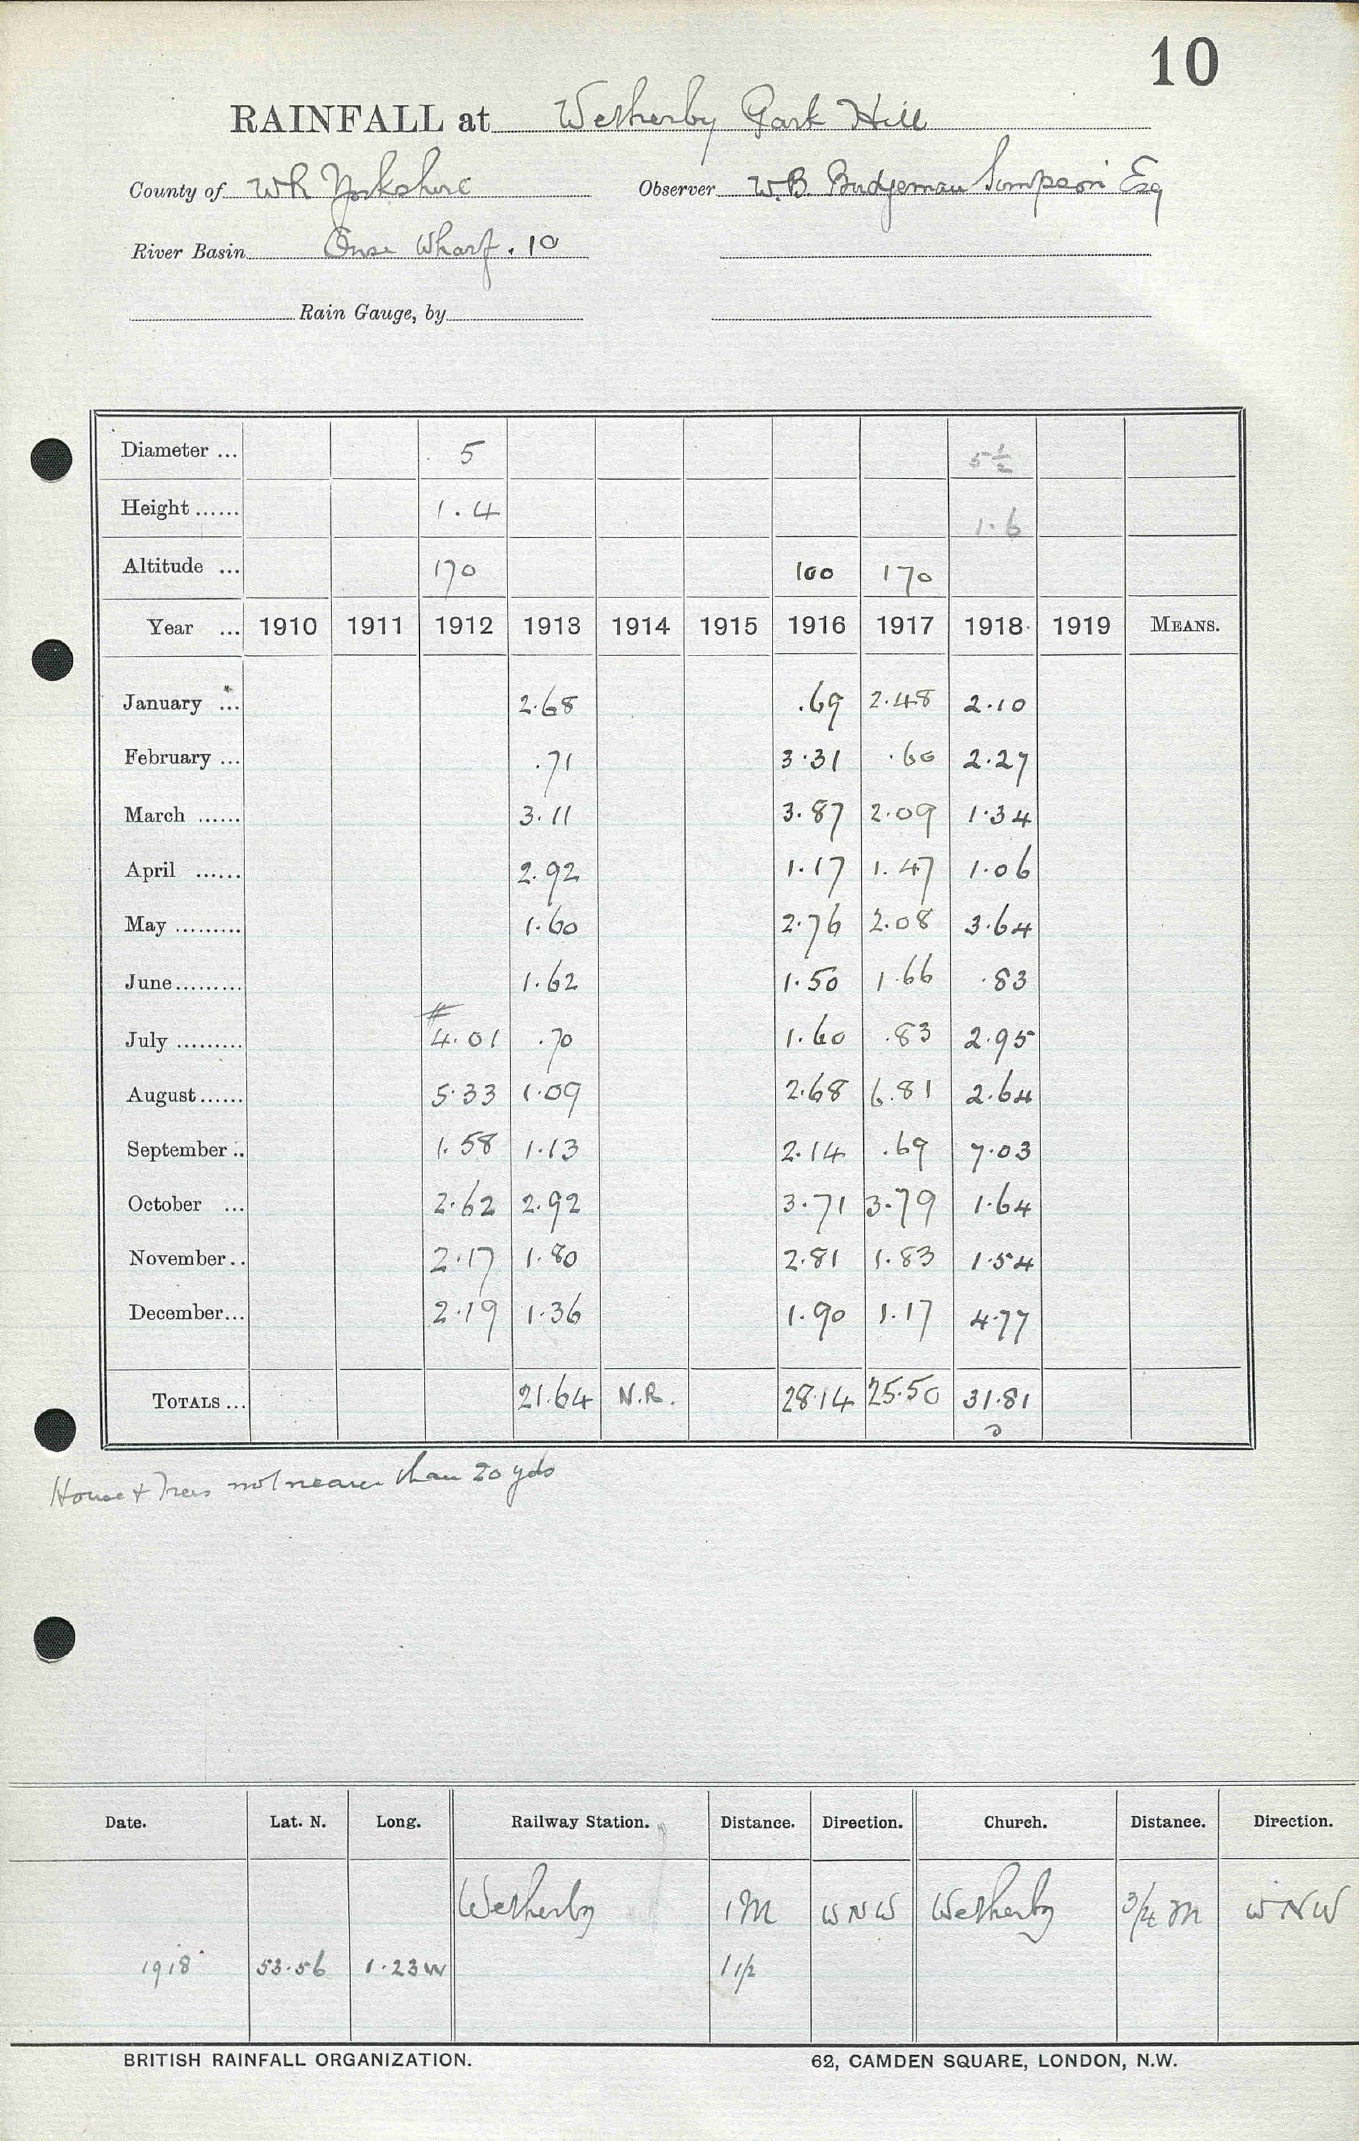 10
RAINFALL at Wetherby Park Hill
County of WR Yorkshire Observer W.B. Bridgeman Simpson Esq
River Basin Ouse Wharf. 10
Rain Gauge, by
Diameter ... 5 5½
Height ...... 1.4 1.6
Altitude ... 170 100 170
Year ... 1910 1911 1912 1913 1914 1915 1916 1917 1918 1919 MEANS.
January ... 2.68 .69 2.48 2.10
February ... .71 3.31 .60 2.27
March ...... 3.11 3.87 2.09 1.34
April ...... 2.92 1.17 1.47 1.06
May ......... 1.60 2.76 2.08 3.64
June ......... 1.62 1.50 1.66 .83
#
July ......... 4.01 .70 1.60 .83 2.95
August ...... 5.33 1.09 2.68 6.81 2.64
September .. 1.58 1.13 2.14 .69 7.03
October ... 2.62 2.92 3.71 3.79 1.64
November .. 2.17 1.80 2.81 1.83 1.54
December ... 2.19 1.36 1.90 1.17 4.77
TOTALS ... 21.64 N.R. 28.14 25.50 31.81
House & Trees not nearer than 20 yds
Date. Lat. N. Long. Railway Station. Distance. Direction. Church. Distance. Direction.
Wetherby 1 M WNW Wetherby 3/4 m WNW
1918 53.56 1.23W 1 1/2
BRITISH RAINFALL ORGANIZATION. 62, CAMDEN SQUARE, LONDON, N.W.